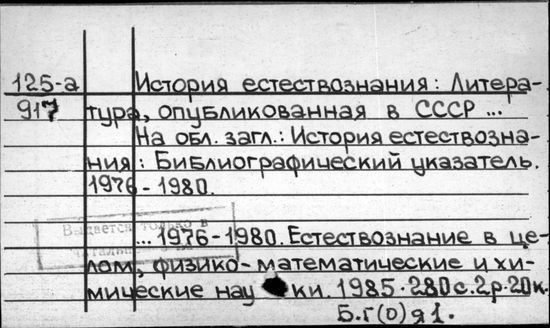 125-а История естествознания: Литера-
917 тура, опубликованная в СССР ...
На обл. загл.: История естествозна-
ния: Библиографический указатель.
1976-1980.
Выдается только в
читальн
... 1976-1980. Естествознание в це-
лом, физико-математические и хи-
мические нау ки. 1985. 280с. 2р. 20к.
Б.г(0)я1.